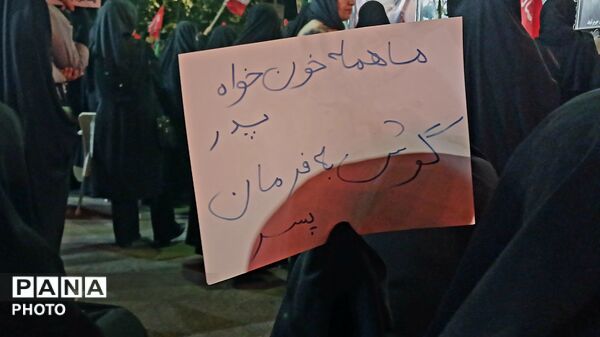 ما همه خون خواه
پدر
گوش به فرمان
پسر
PANA
PHOTO